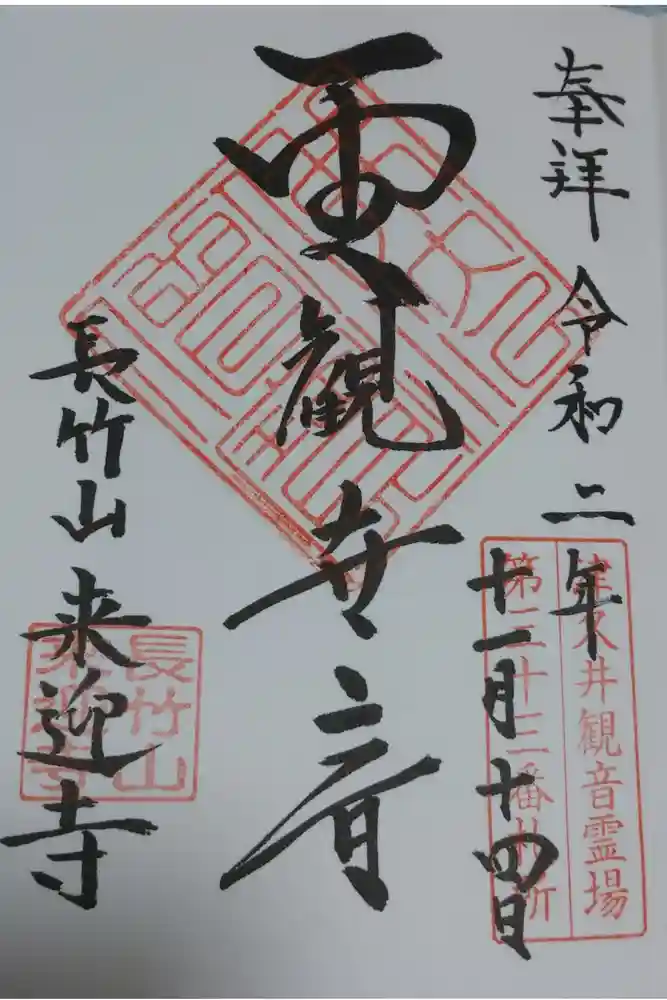 奉拝 令和二年
十一月十四日
津久井観音霊場
第三十三番札所
観世音
長竹山 来迎寺
長竹山
来迎寺